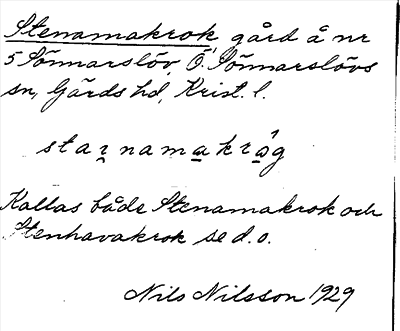 Stenamakrok, gård å nr
5 Sönnarslöv, Ö. Sönnarslövs
sn, Gärds hd, Krist. l.
starnamakråg
Kallas både Stenamakrok och
Stenhavakrok se d. o.
Nils Nilsson 1929